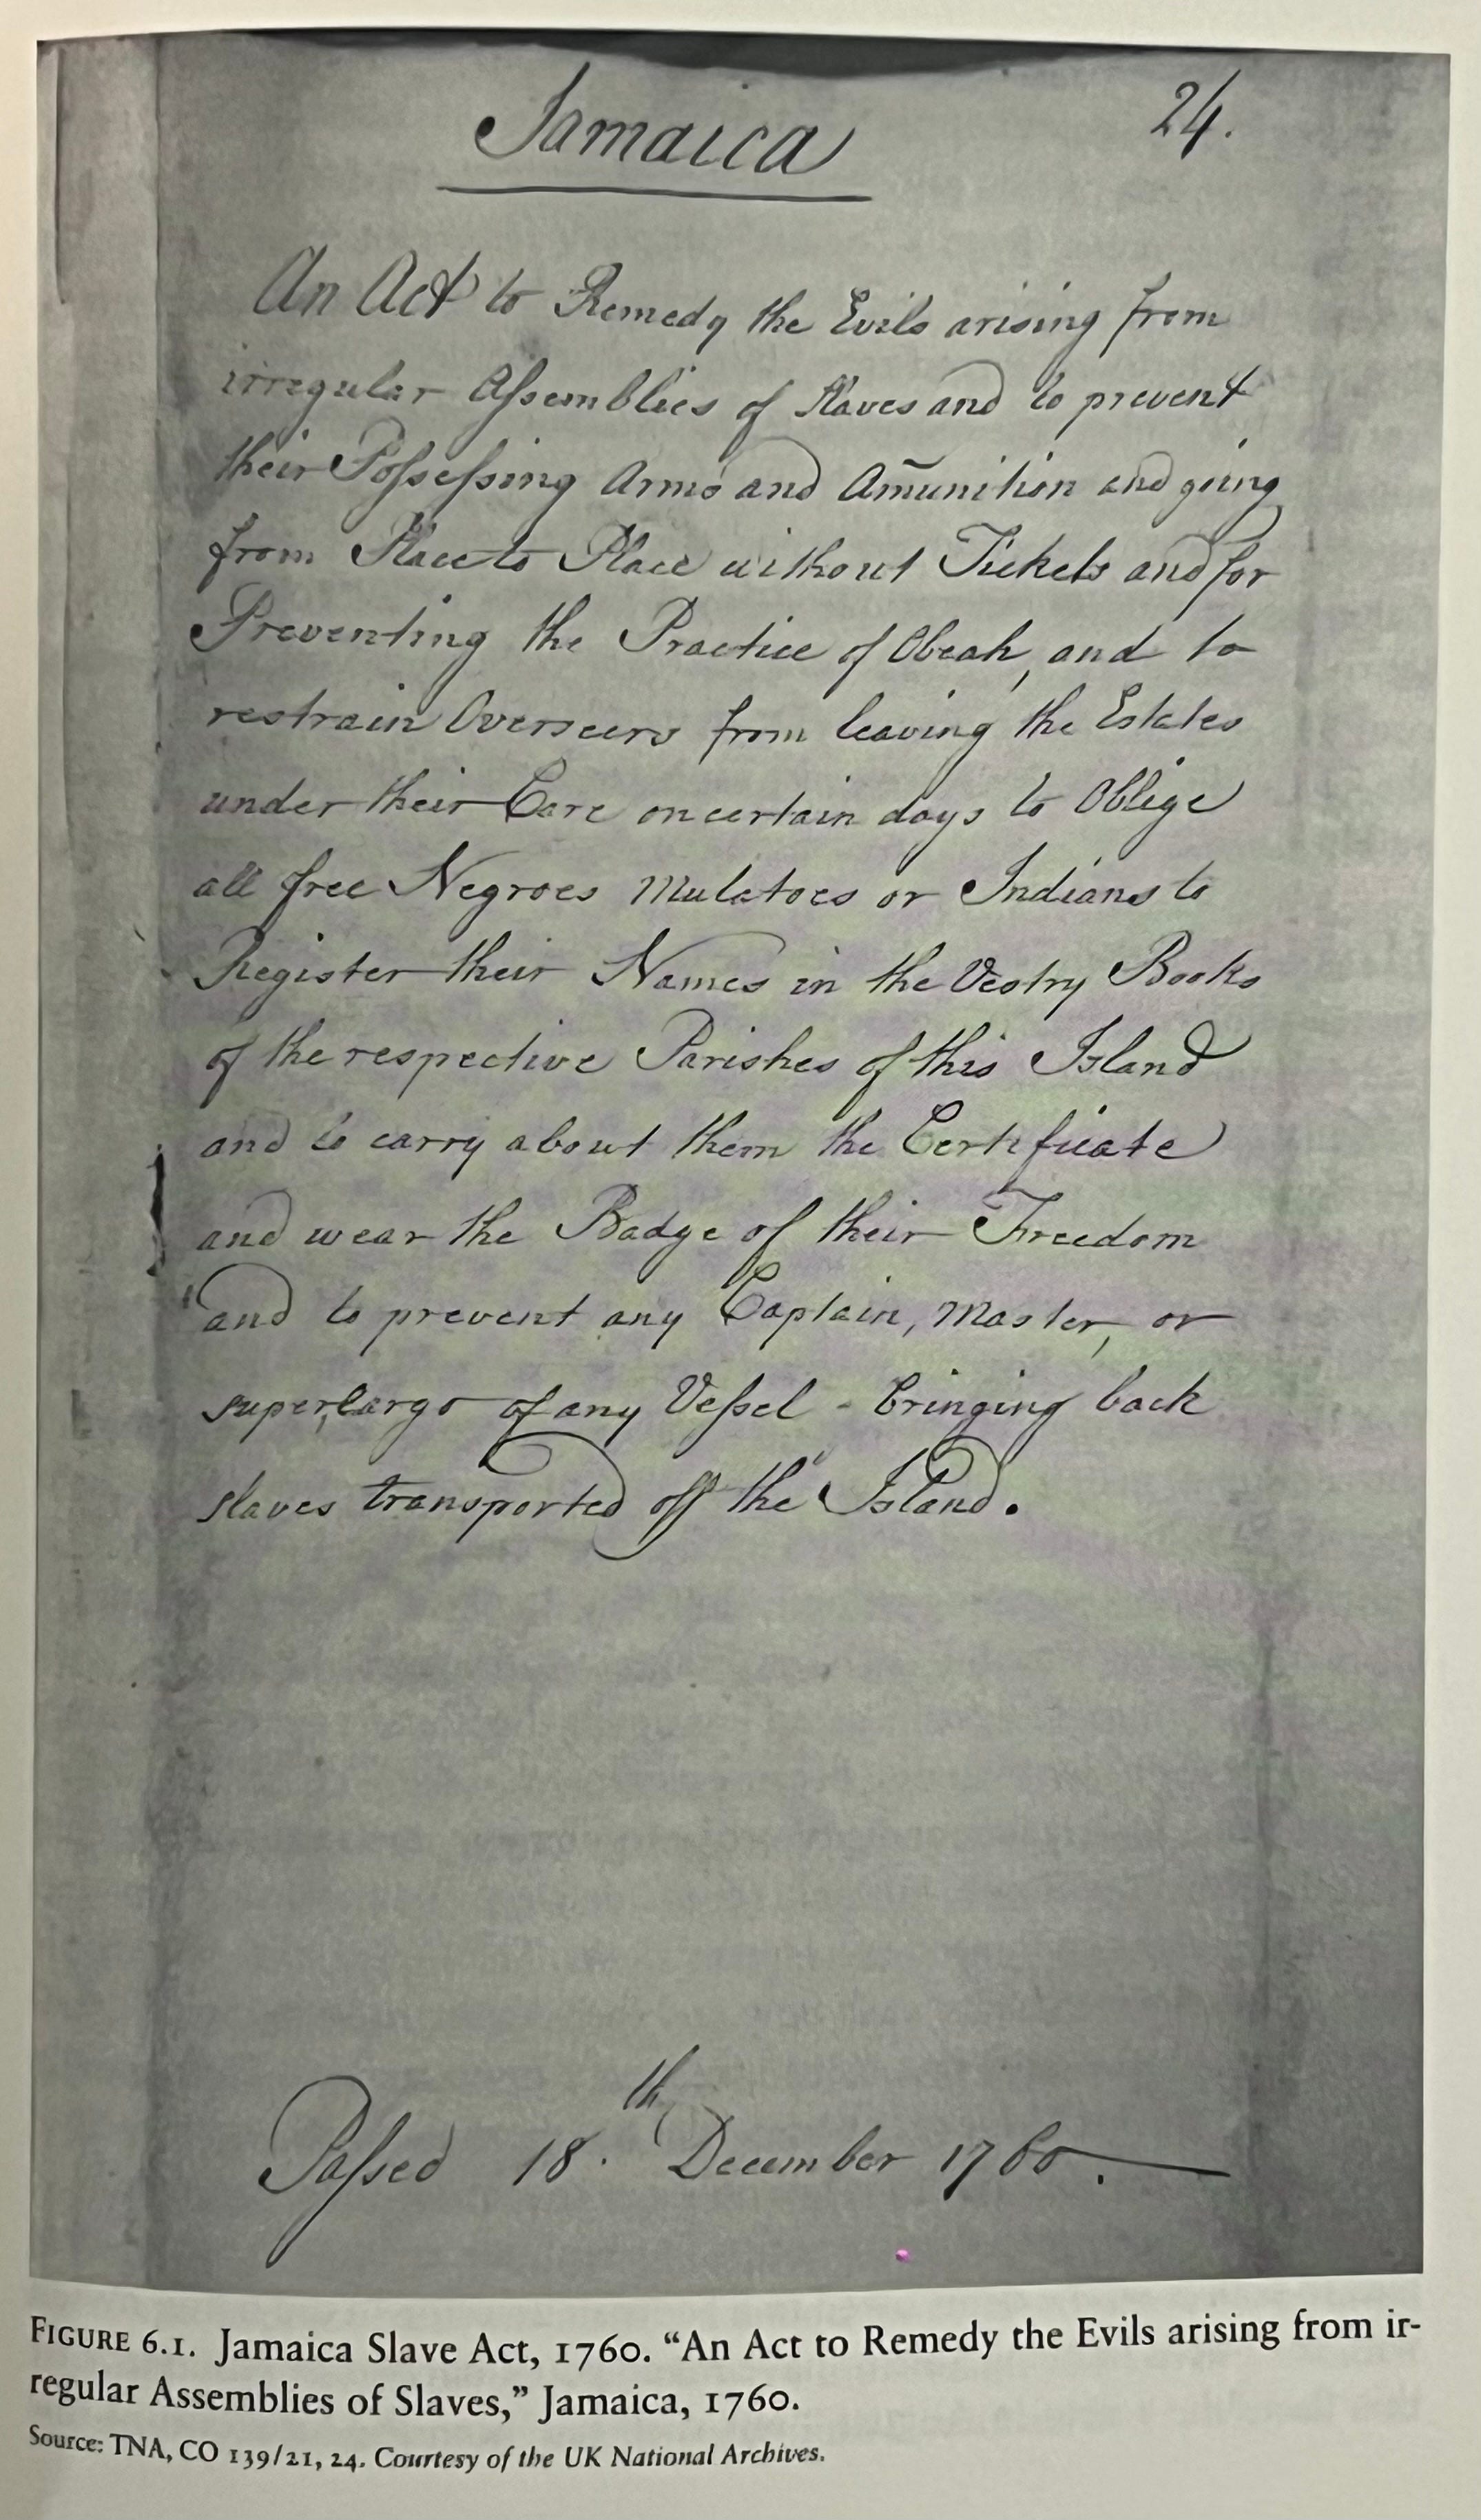 Jamaica
24.
An Act to Remedy the Evils arising from
irregular Aſsemblies of Slaves and to prevent
their Poſseſsing Arms and Am̄unition and going
from Place to Place without Tickets and for
Preventing the Practice of Obeah, and to
restrain Overseers from leaving the Estates
under their Care on certain days to Oblige
all free Negroes Mulatoes or Indians to
Register their Names in the Vestry Books
of the respective Parishes of this Island
and to carry about them the Certificate
and wear the Badge of their Freedom
and to prevent any Captain, Master, or
supercargo of any Veſsel - bringing back
slaves transported off the Island.
Paſsed 18.th December 1760.
FIGURE 6.1. Jamaica Slave Act, 1760. “An Act to Remedy the Evils arising from ir-
regular Assemblies of Slaves,” Jamaica, 1760.
Source: TNA, CO 139/21, 24. Courtesy of the UK National Archives.